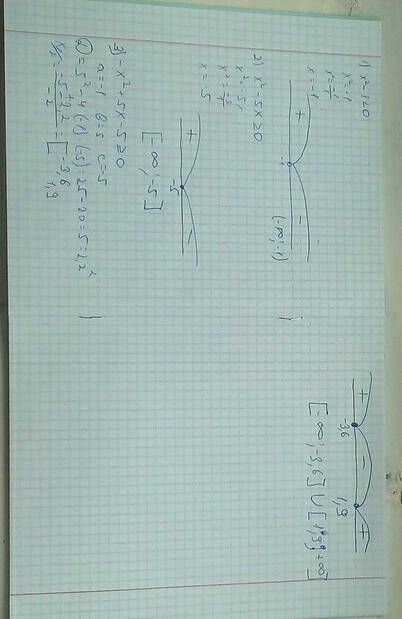 1) x²-1>0
x²=-1
x=-1
+ -
-1
(-∞; -1)
2) x²-5x≥0
x²-5x
x=-5
+ -
-5
[-∞; -5]
3) -x²+5x-5≥0
a=-1 b=5 c=-5
D=5²-4·(-1)·(-5)=25-20=5=2,2²
-3,6
1,9
+ - +
-3,6 1,9
[-∞; -3,6] ∪ [1,9; +∞]